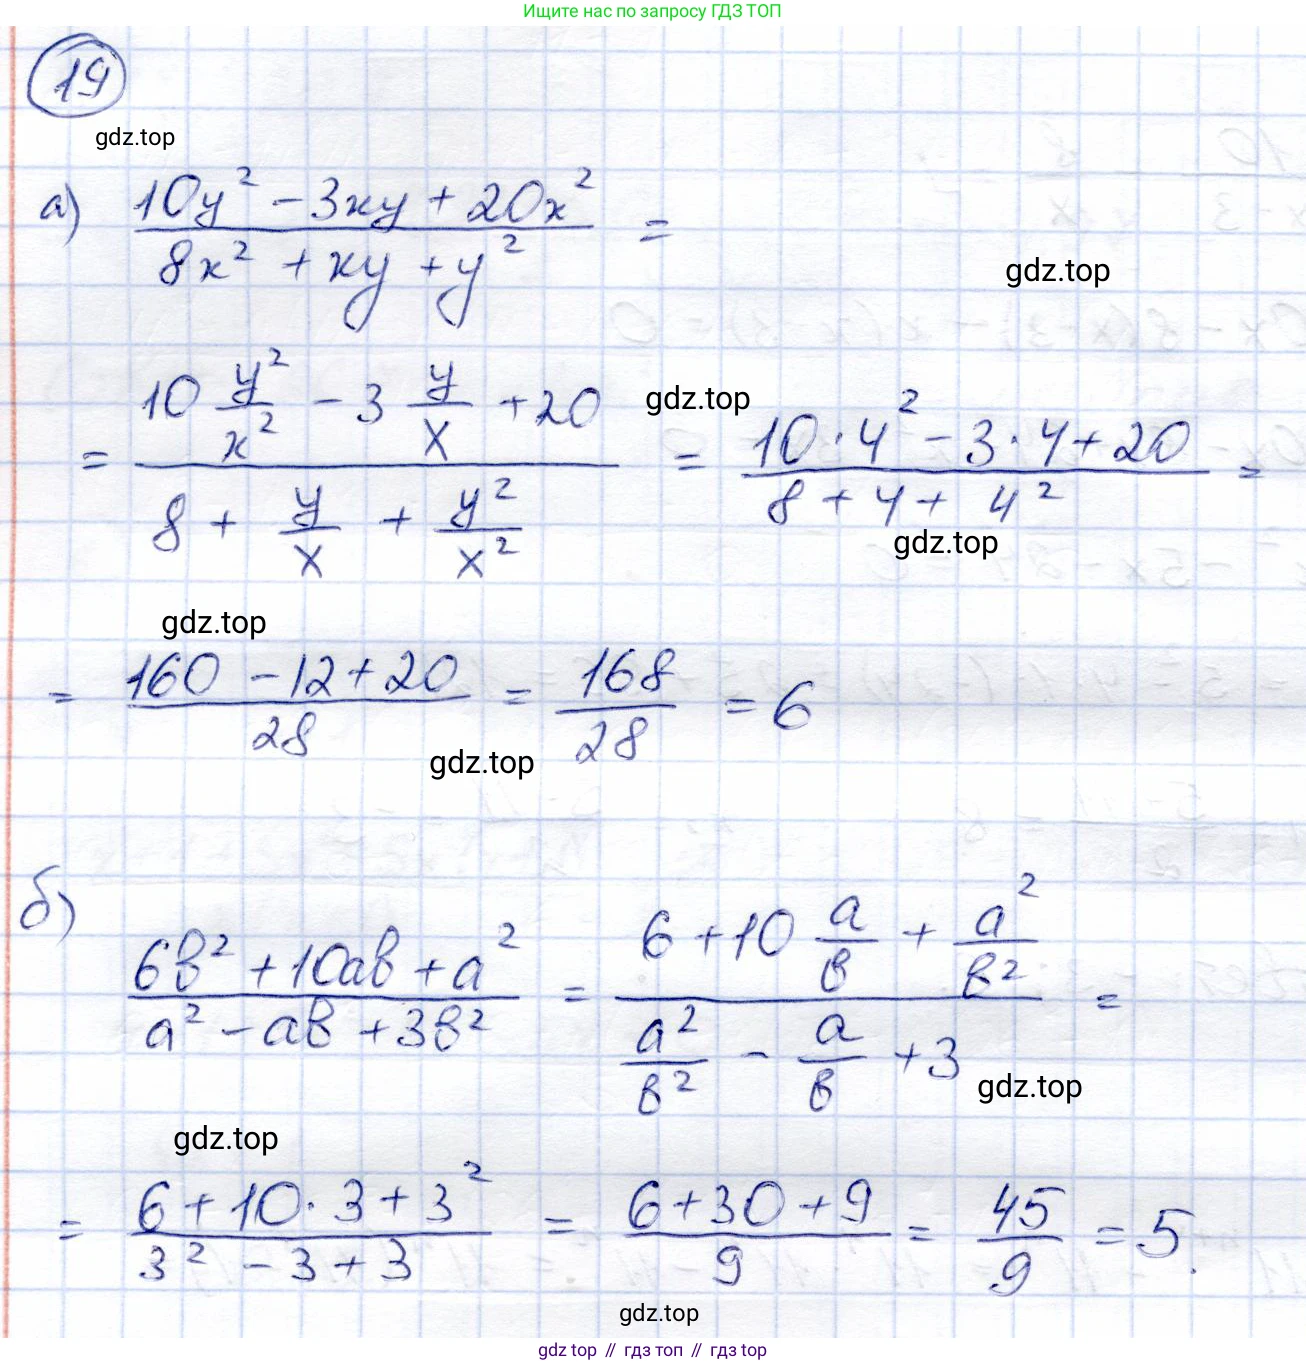 Ищите нас по запросу ГДЗ ТОП
19
gdz.top
а) (10y² - 3xy + 20x²) / (8x² + xy + y²) =
gdz.top
= (10 y²/x² - 3 y/x + 20) / (8 + y/x + y²/x²) = (10 · 4² - 3 · 4 + 20) / (8 + 4 + 4²) =
gdz.top
gdz.top
gdz.top
= (160 - 12 + 20) / 28 = 168 / 28 = 6
gdz.top
б) (6в² + 10ав + а²) / (а² - ав + 3в²) = (6 + 10 а/в + а²/в²) / (а²/в² - а/в + 3) =
gdz.top
gdz.top
= (6 + 10 · 3 + 3²) / (3² - 3 + 3) = (6 + 30 + 9) / 9 = 45 / 9 = 5.
gdz.top
gdz top // гдз топ // гдз top